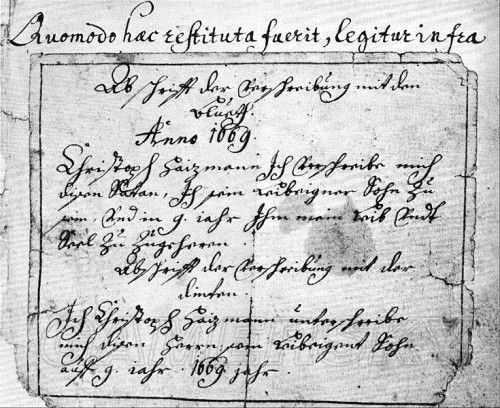 Quomodo haec restituta fuerit, legitur infra
Abschrifft der Verschreibung mit den
Bluet.
Anno 1669.
Christoph Haizmann Ich Verschreibe mich
disen Satan, Ich sein leibeigner Sohn Zu
sein, Vnd in 9. iahr Ihm mein leib Vndt
Seel Zu Zugeheren.
Abschrifft der Verschreibung mit der
dinten.
Ich Christoph Haizmann unterschreibe
mich disen Herrn, sein leibeigent Sohn
auff 9. iahr. 1669 jahr.